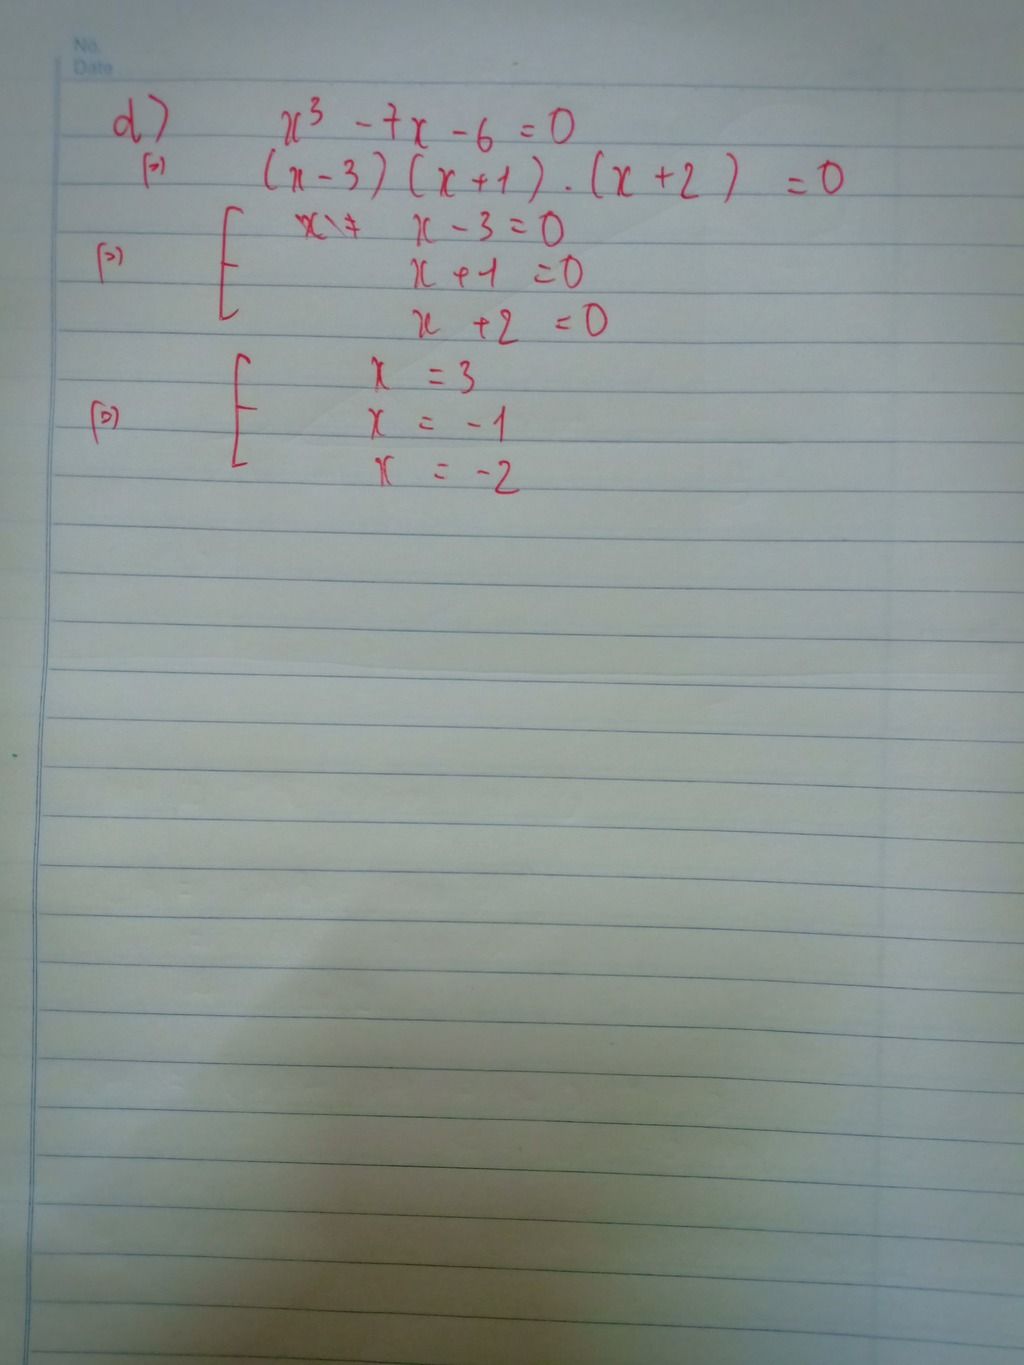 No.
Date
d) x³ - 7x - 6 = 0
(=) (x - 3) (x + 1) . (x + 2) = 0
x - 3 = 0
(=) [ x + 1 = 0
x + 2 = 0
x = 3
(=) [ x = -1
x = -2